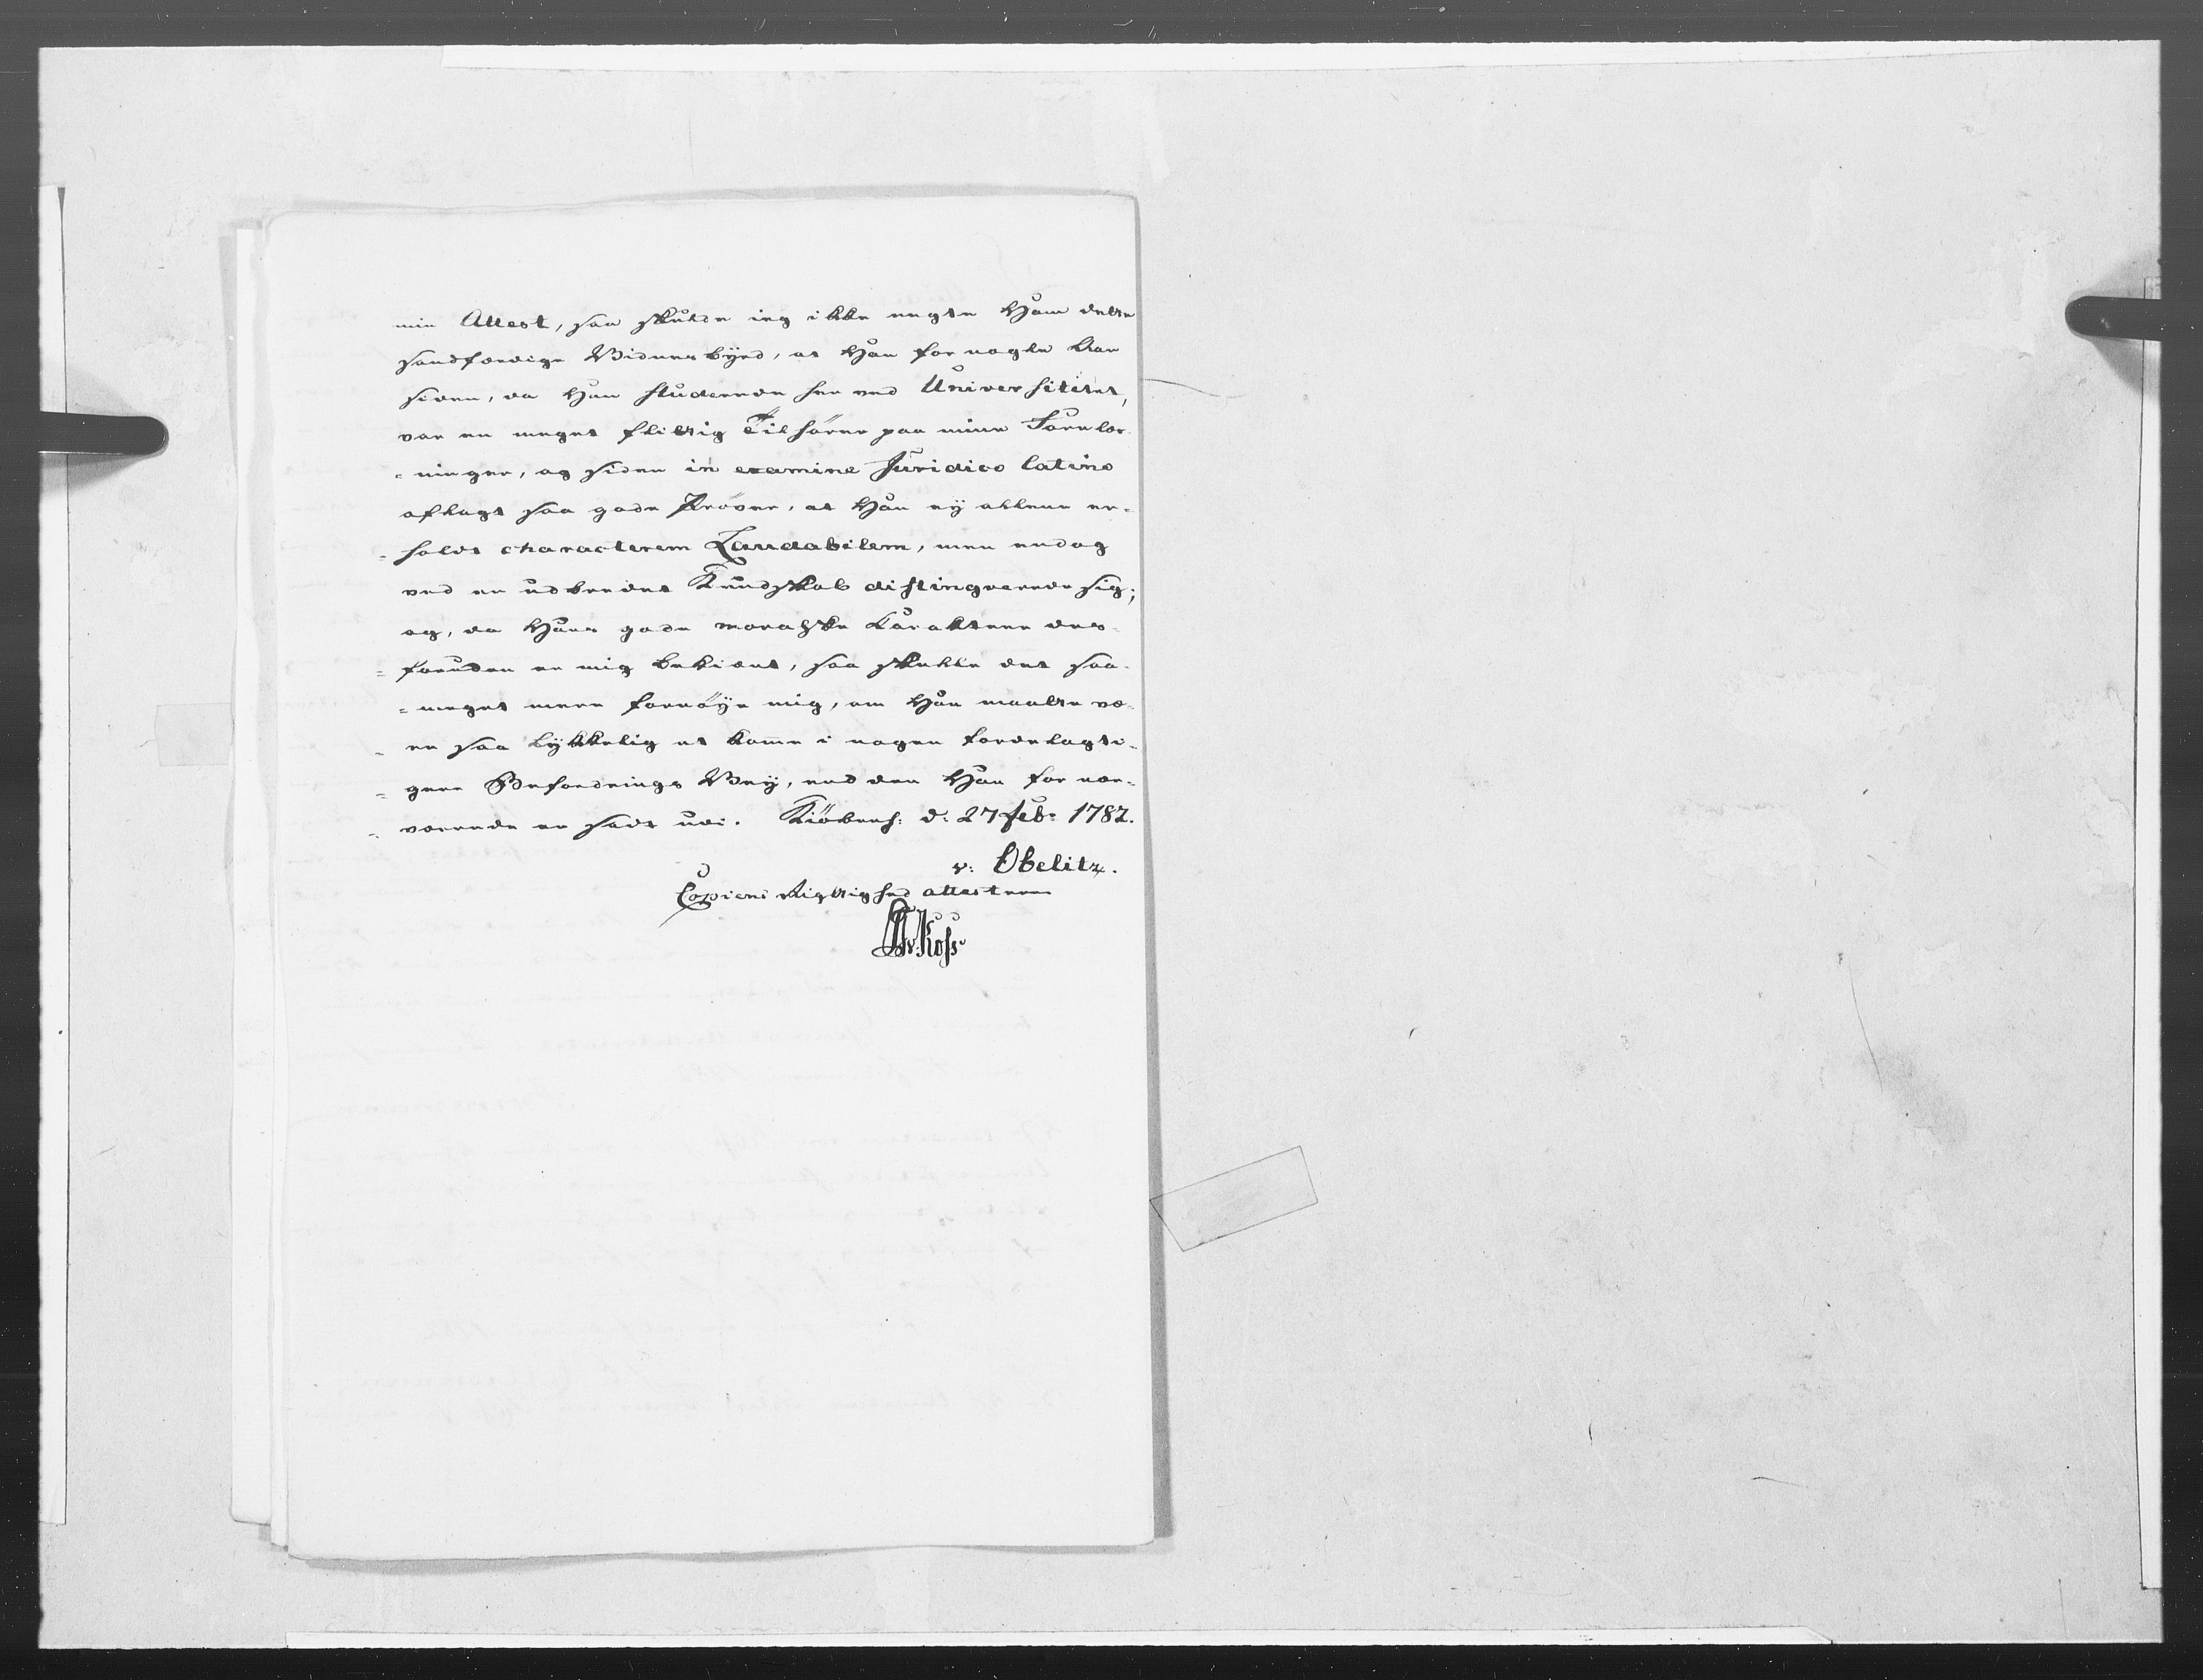 min Attest, saa skulde ieg ikke negte Ham dette
sandfærdige Vidnesbyrd, at Han for nogle Aar
siden, da Han studerede her ved Universitetet,
var en meget flittig Tilhörer paa mine Forelæs-
=ninger, og siden in examine Juridico latino
aflagt saa gode Pröver, at Han ey allene er-
=holdt characterem Laudabilem, men endog
ved en udbredet Kundskab distingverede sig;
og, da Hans gode moralske Karakteer des-
=foruden er mig bekiendt, saa skulle det saa-
=meget mere fornöye mig, om Han maatte væ-
=re saa lykkelig at komme i nogen fordelagti-
=gere Befordrings Vey, end den Han for nær-
=værende er sadt udi. Kiöbenh: d: 27 Feb: 1782.
v: Obelitz.
Copiens Rigtighed attesterer
v. Koss